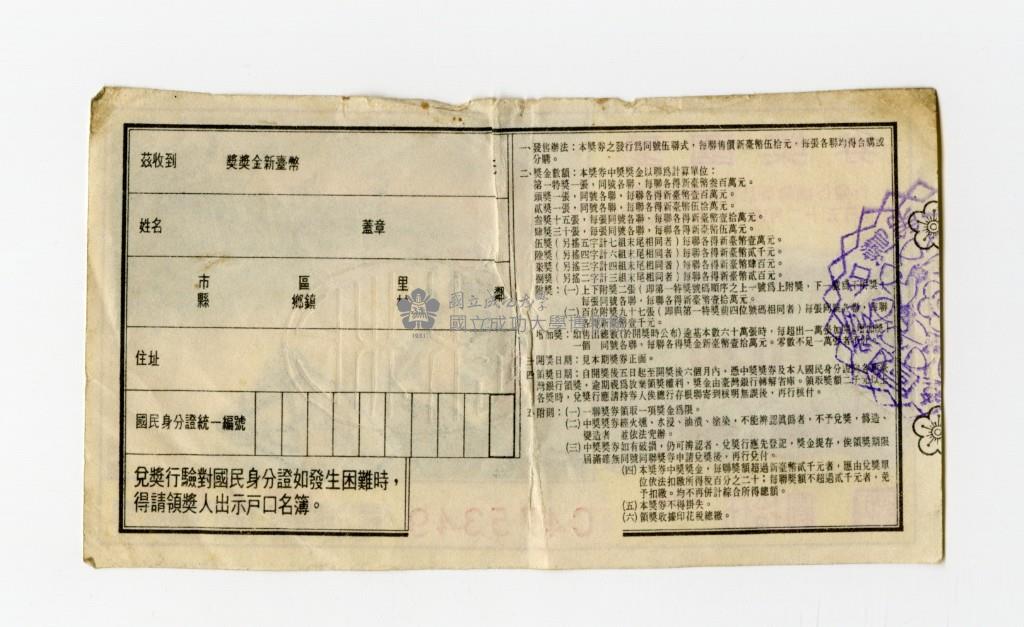 茲收到
獎獎金新臺幣
姓名
蓋章
市
縣
區
鄉鎮
里
鄰
住址
國民身分證統一編號
兌獎行驗對國民身分證如發生困難時，
得請領獎人出示戶口名簿。
一、發售辦法：本獎券之發行為同號伍聯式，每聯售價新臺幣伍拾元，每張各聯均得合購或
分購。
二、獎金數額：本獎券中獎獎金以聯為計算單位：
第一特獎一張，同號各聯，每聯各得新臺幣叁百萬元。
頭獎一張，同號各聯，每聯各得新臺幣壹百萬元。
貳獎一張，同號各聯，每聯各得新臺幣伍拾萬元。
叁獎十五張，每張同號各聯，每聯各得新臺幣壹拾萬元。
肆獎三十張，每張同號各聯，每聯各得新臺幣伍萬元。
伍獎（另搖五字計七組末尾相同者）每聯各得新臺幣壹萬元。
陸獎（另搖四字計六組末尾相同者）每聯各得新臺幣貳千元。
柒獎（另搖三字計四組末尾相同者）每聯各得新臺幣肆百元。
捌獎（另搖二字計三組末尾相同者）每聯各得新臺幣貳百元。
附獎：（一）上下附獎二張（即第一特獎號碼順序之上一號為上附獎，下一號為下附獎）
每張同號各聯，每聯各得新臺幣壹拾萬元。
（二）百位附獎九十七張（即與第一特獎前四位號碼相同者）每張同號各聯，每聯
各得新臺幣壹千元。
增加獎：如售出總數（於開獎時公布）逾基本數六十萬張時，每超出一萬張
一個 同號各聯，每聯各得獎金新臺幣壹拾萬元。零數不足一萬張者
三、開獎日期：見本期獎券正面。
四、領獎日期：自開獎後五日起至開獎後六個月內，憑中獎獎券及本人國民身分證
灣銀行領獎，逾期視為放棄領獎權利，獎金由臺灣銀行轉解省庫。領取獎額
各獎時，兌獎行應請持券人俟應行存根聯寄到核明無誤後，再行核付。
五、附則：（一）一聯獎券領取一項獎金為限。
（二）中獎獎券經火燻、水浸、油漬、塗染，不能辨認真偽者，不予兌獎，偽造、
變造者 並依法究辦。
（三）中獎獎券如有破損，仍可辨認者，兌獎行應先登記，獎金提存，俟領獎期限
屆滿確無同號同聯獎券申請兌獎後，再行兌付。
（四）本獎券中獎獎金，每聯獎額超過新臺幣貳千元者，應由兌獎單
位依法扣繳所得稅百分之二十；每聯獎額不超過貳千元者，免
予扣繳。均不再併計綜合所得總額。
（五）本獎券不得掛失。
（六）領獎收據印花稅總繳。
國立成功大學
國立成功大學博物館
1931